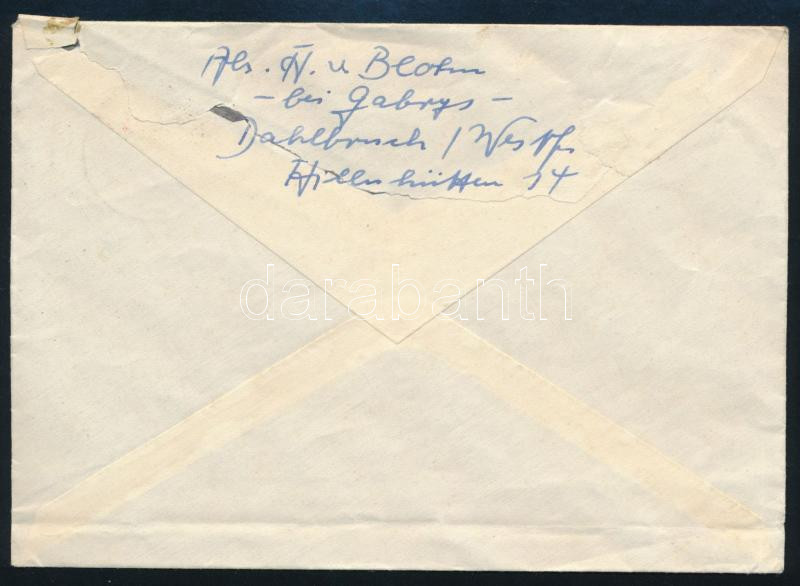 Abs. H. v. Blohm
- bei Gabrys -
Dahlbruch / Westf.
Hillnhütten 14
darabanth